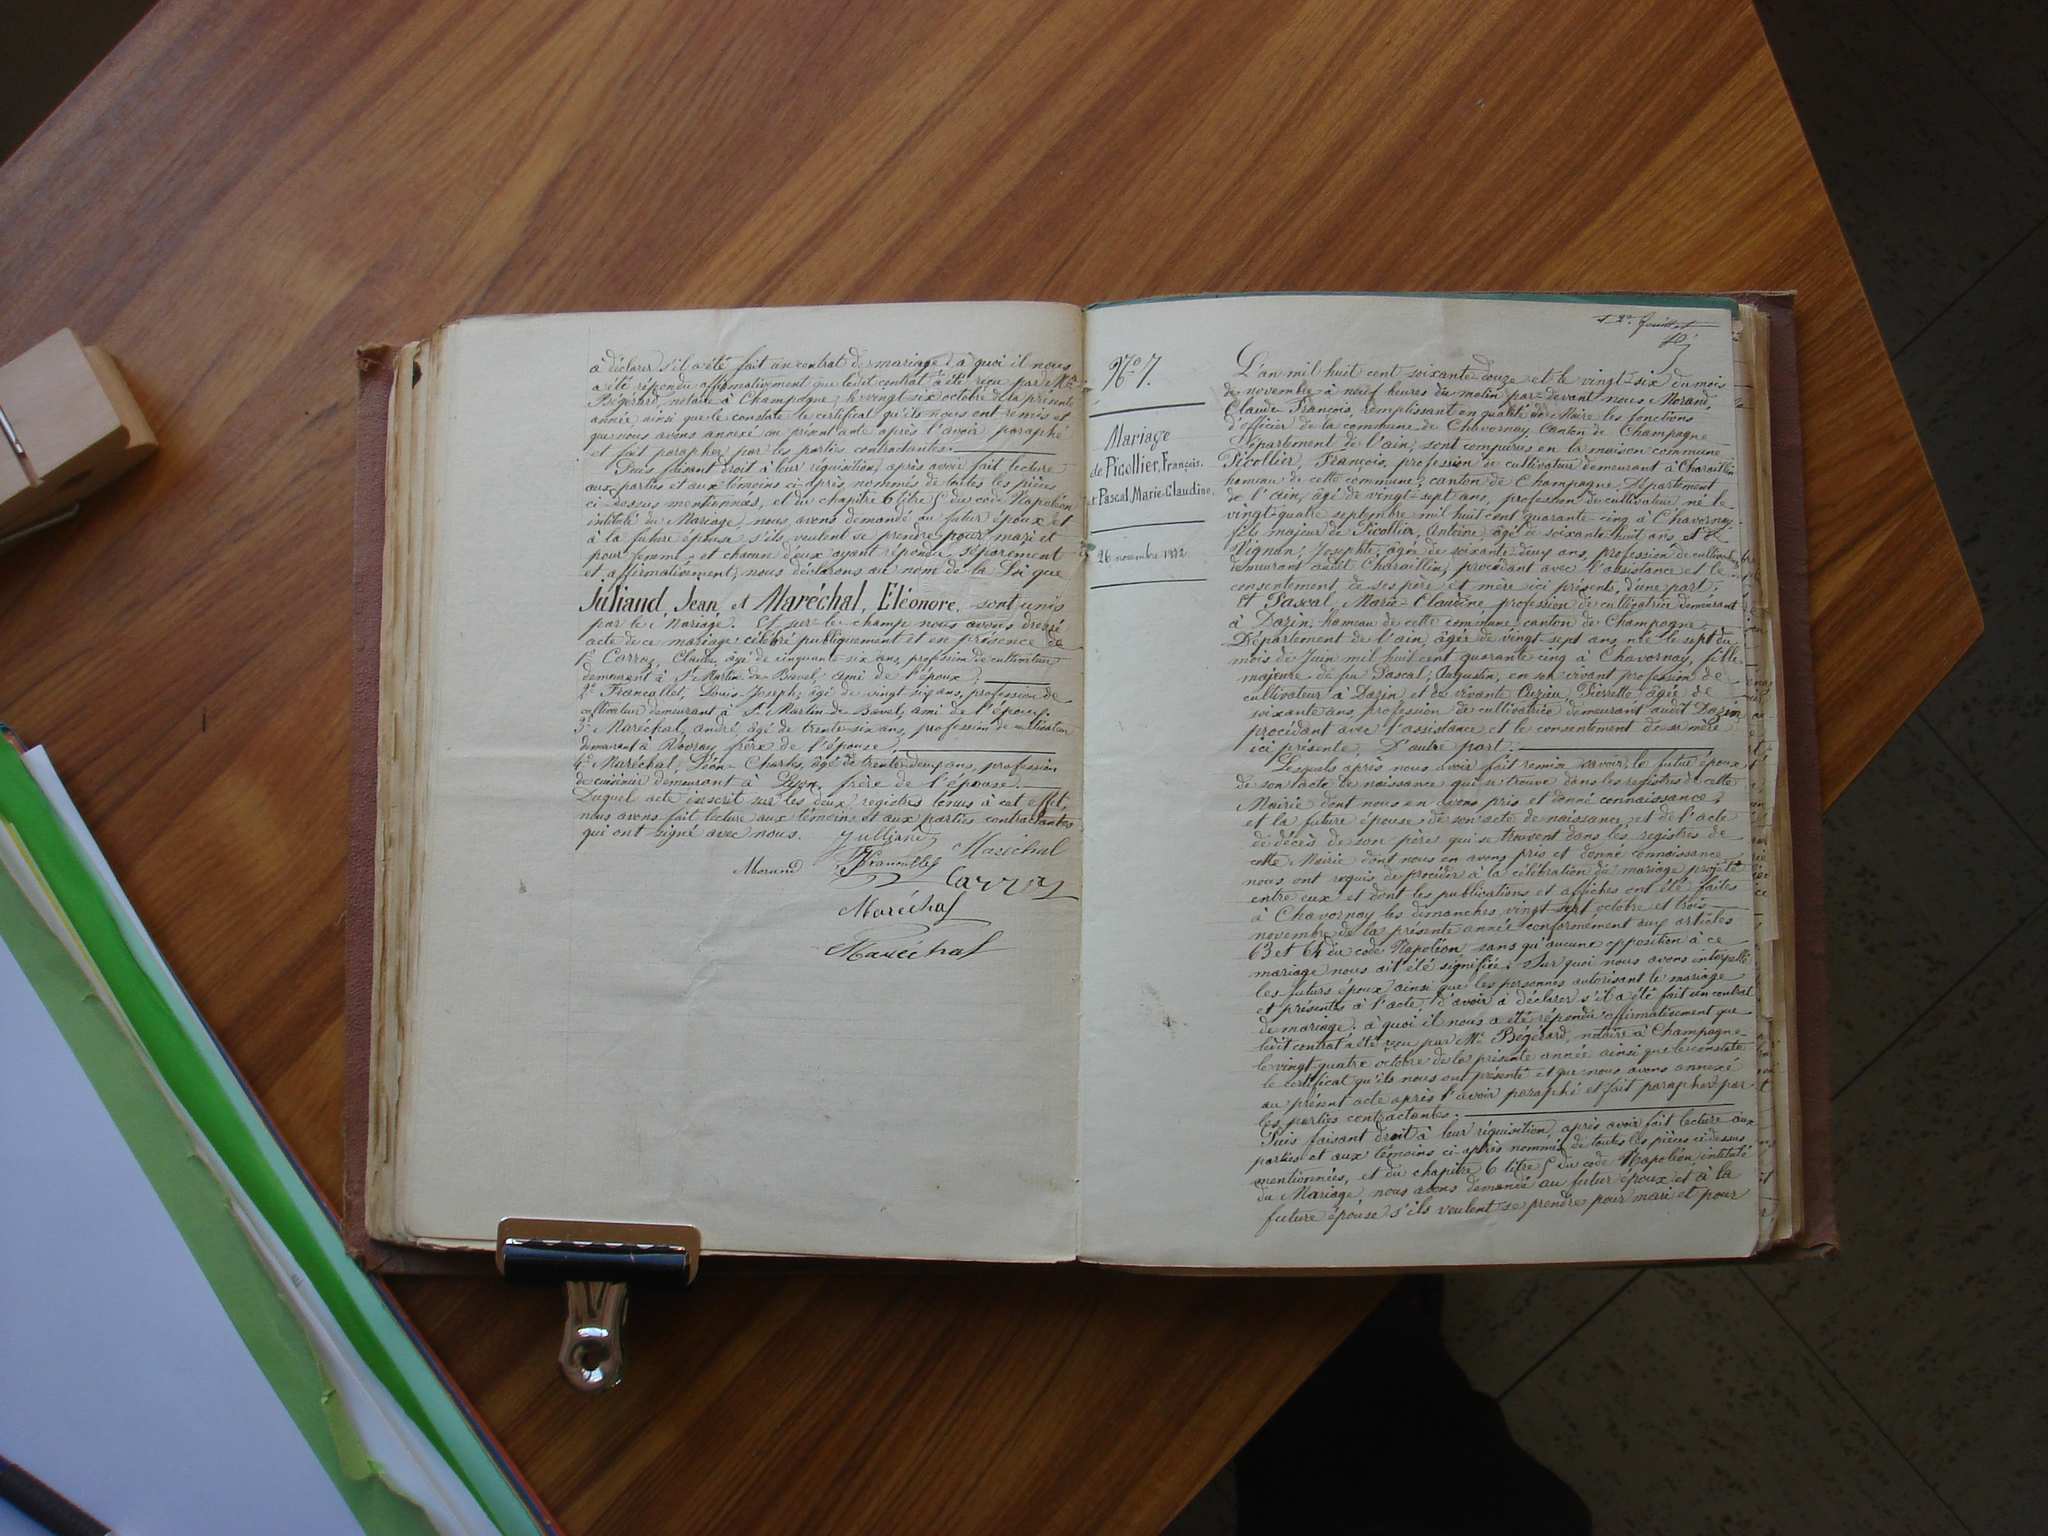 à déclarer s'il a été fait un contrat de mariage, à quoi il nous
a été répondu affirmativement que ledit contrat a été reçu par Mtre
Bégérard, notaire à Champagne, le vingt six octobre de la présente
année ainsi que le constate le certificat qu'ils nous ont remis et
que nous avons annexé au présent acte après l'avoir paraphé
et fait parapher par les parties contractantes.
Puis faisant droit à leur réquisition, après avoir fait lecture
aux parties et aux témoins ci-après nommés de toutes les pièces
ci-dessus mentionnées, et du chapitre 6 titre 5 du code Napoléon
intitulé du Mariage, nous avons demandé au futur époux et
à la future épouse s'ils veulent se prendre pour mari et
pour femme, et chacun d'eux ayant répondu séparément
et affirmativement, nous déclarons au nom de la Loi que
Juliand, Jean, et Maréchal, Eléonore, sont unis
par le Mariage. Et sur-le-champ nous avons dressé
acte de ce mariage célébré publiquement et en présence de
1° Carraz, Claude, âgé de cinquante-six ans, profession de cultivateur
demeurant à St Martin de Bavel, ami de l'époux,
2° Francallet, Louis Joseph, âgé de vingt six ans, profession de
cultivateur demeurant à St Martin-de-Bavel, ami de l'époux.
3° Maréchal, andré, âgé de trente-six ans, profession de cultivateur
demeurant à frère de l'épouse,
4° Maréchal, Léon-Charles, âgé de trente-deux ans, profession
de cuisinier demeurant à Lyon, frère de l'épouse.
Duquel acte inscrit sur les deux registres tenus à cet effet,
nous avons fait lecture aux témoins et aux parties contractantes
qui ont signé avec nous. Julliand
Maréchal
Morand
Carraz
Maréchal
Maréchal
12e feuillet
N° 7.
Mariage
de Picollier, François.
et Pascal, Marie-Claudine.
26 novembre 1872.
L'an mil huit cent soixante-douze et le vingt-six du mois
de novembre à neuf heures du matin par-devant nous Morand,
Claude François, remplissant en qualité de Maire les fonctions
d'officier de la commune de Chavornay Canton de Champagne
Département de l'ain, sont comparus en la maison commune
Picollier, François, profession de cultivateur demeurant à Charaillin
hameau de cette commune, canton de Champagne, Département
de l'ain, âgé de vingt-sept ans, profession de cultivateur né le
vingt-quatre septembre mil huit cent quarante cinq à Chavornay,
fils majeur de Picollier, Antoine, âgé de soixante-huit ans, et de
Vignan, Josephte, âgée de soixante-deux ans, profession de cultivat
demeurans audit Charaillin, procédant avec l'assistance et le
consentement de ses père et mère ici présents, d'une part;
Et Pascal, Marie-Claudine profession de cultivatrice demeurant
à Dazin, hameau de cette commune, canton de Champagne
Département de l'ain, âgée de vingt sept ans, née le sept du
mois de Juin mil huit cent quarante cinq à Chavornay, fille
majeure de feu Pascal, Augustin, en son vivant profession de
cultivateur à Dazin, et de vivante Pierrette, âgée de
soixante ans, profession de cultivatrice demeurant audit Dazin
procédant avec l'assistance et le consentement de sa mère
ici présente, D'autre part.
Lesquels après nous avoir fait remise savoir, le futur époux
de son acte de naissance qui se trouve dans les registres de cette
Mairie dont nous en avons pris et donné connaissance,
et la future épouse de son acte de naissance, et de l'acte
de décès de son père qui se trouvent dans les registres de
cette Mairie dont nous en avons pris et donné connaissance
nous ont requis de procéder à la célébration du mariage projeté
entre eux et dont les publications et affiches ont été faites
à Chavornay les dimanches vingt-sept octobre et trois
novembre de la présente année conformément aux articles
63 et 64 du code Napoléon sans qu'aucune opposition à ce
mariage nous ait été signifiée. Sur quoi nous avons interpellé
les futurs époux ainsi que les personnes autorisant le mariage
et présentes à l'acte, d'avoir à déclarer s'il a été fait un contrat
de mariage, à quoi il nous a été répondu affirmativement que
ledit contrat a été reçu par Me Bégérard, notaire à Champagne
le vingt-quatre octobre de la présente année ainsi que le constate
le certificat qu'ils nous ont présenté et que nous avons annexé
au présent acte après l'avoir paraphé et fait parapher par
les parties contractantes.
Puis faisant droit à leur réquisition après avoir fait lecture aux
parties et aux témoins ci-après nommés de toutes les pièces ci-dessus
mentionnées, et du chapitre 6 titre 5 du code Napoléon intitulé
du Mariage, nous avons demandé au futur époux et à la
future épouse s'ils veulent se prendre pour mari et pour